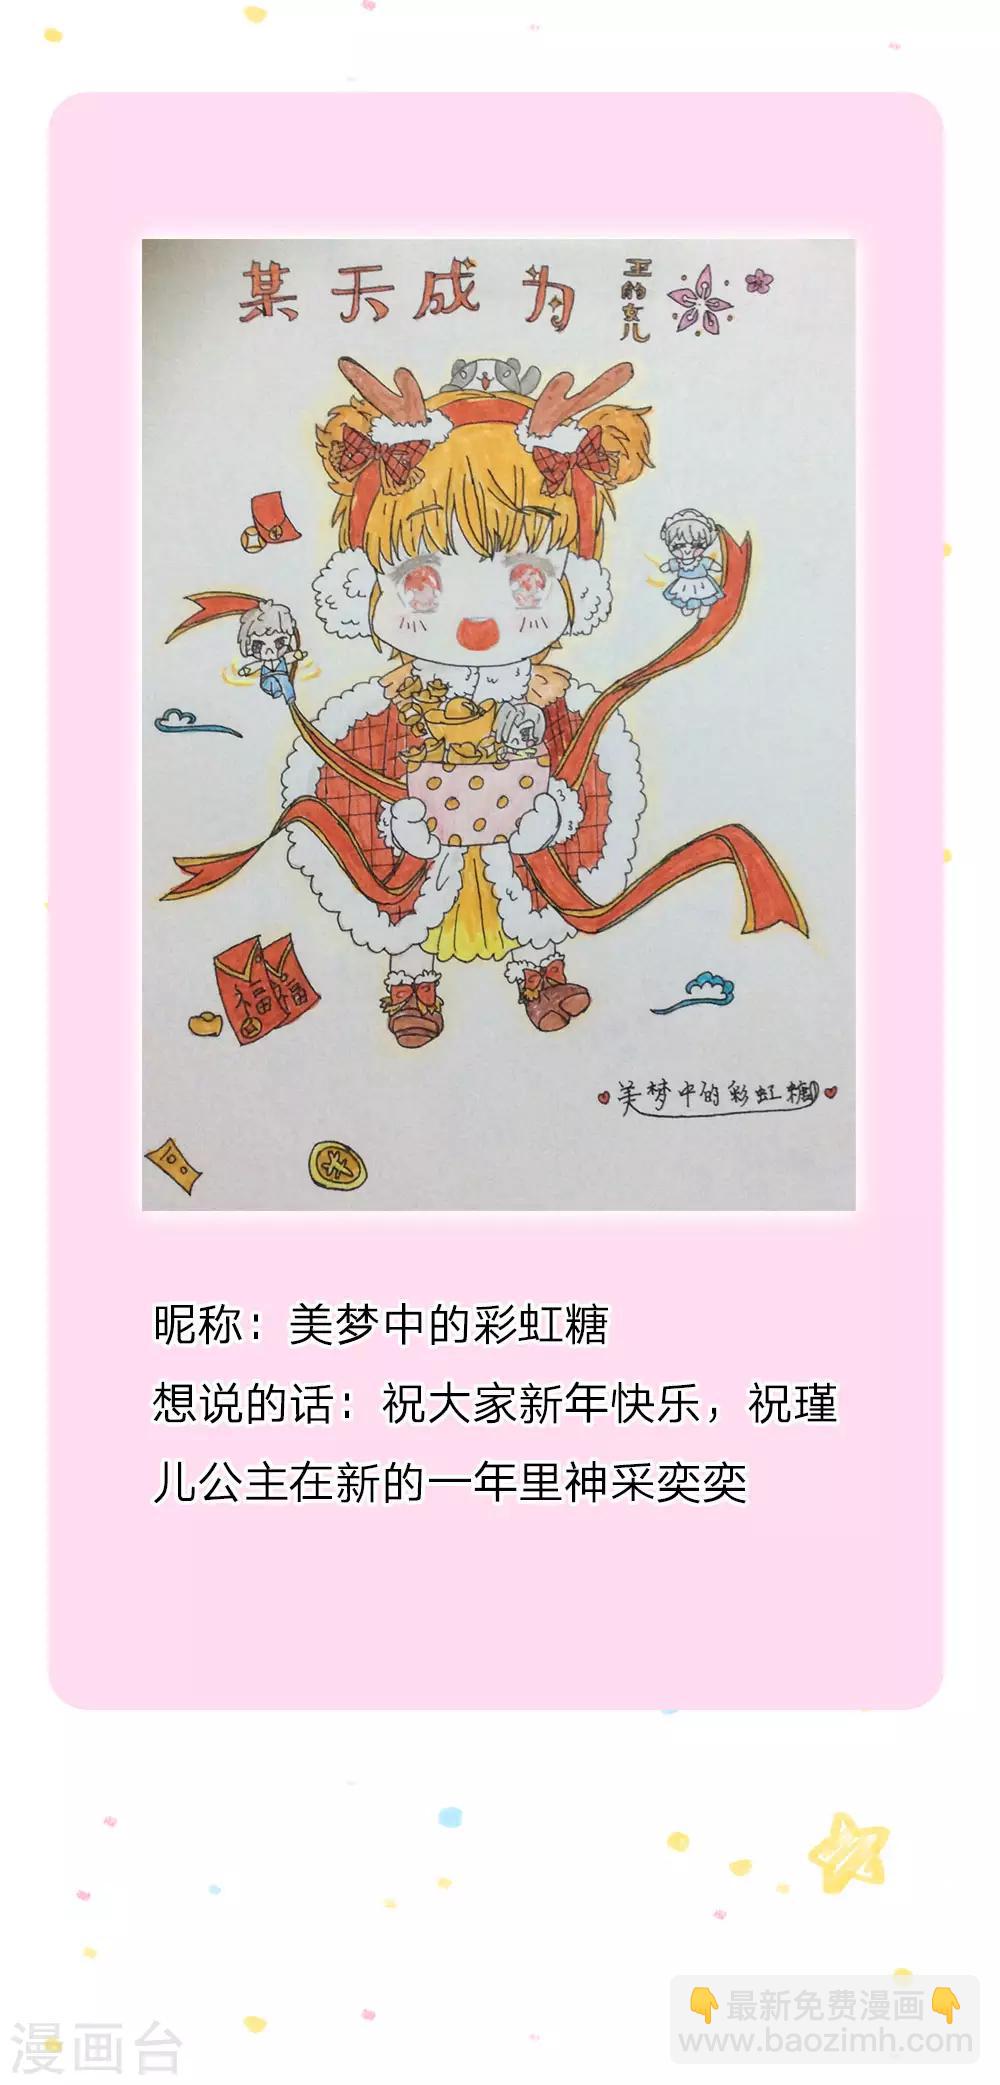 某天成为
王的女儿
福
福
美梦中的彩虹糖
100
昵称：美梦中的彩虹糖
想说的话：祝大家新年快乐，祝瑾
儿公主在新的一年里神采奕奕
漫画台
👇最新免费漫画👇
www.baozimh.com